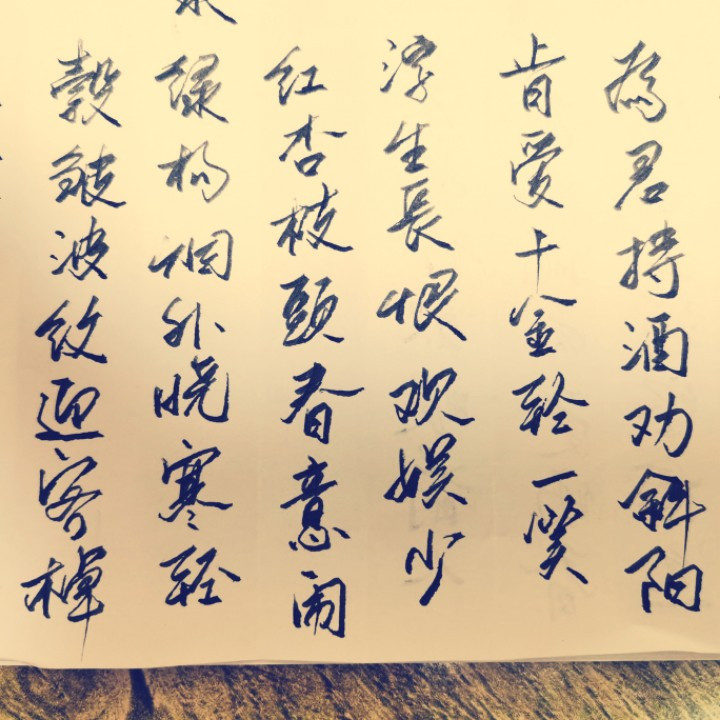 縠皱波纹迎客棹
绿杨烟外晓寒轻
红杏枝頭春意闹
浮生長恨欢娱少
肯愛千金轻一笑
為君持酒劝斜阳